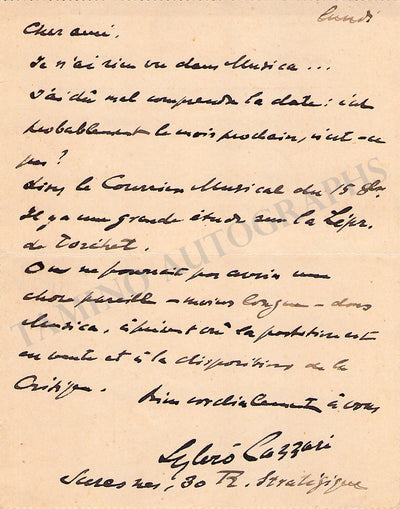 lundi
Cher ami.
Je n'ai rien vu dans Musica...
J'ai dû mal comprendre la date : c'est
probablement le mois prochain, n'est-ce
pas?
Lisez le Courrier Musical du 15 8bre
Il y a une grande étude sur la Lépr.
de Torchet.
On ne pourrait pas avoir une
chose pareille - moins longue - dans
Musica, à présent où la partition est
en vente et à la disposition de la
Critique.
Bien cordialement à vous
Sylvio Lazzari
Suresnes, 30 R. Stratégique
TAMINO AUTOGRAPHS